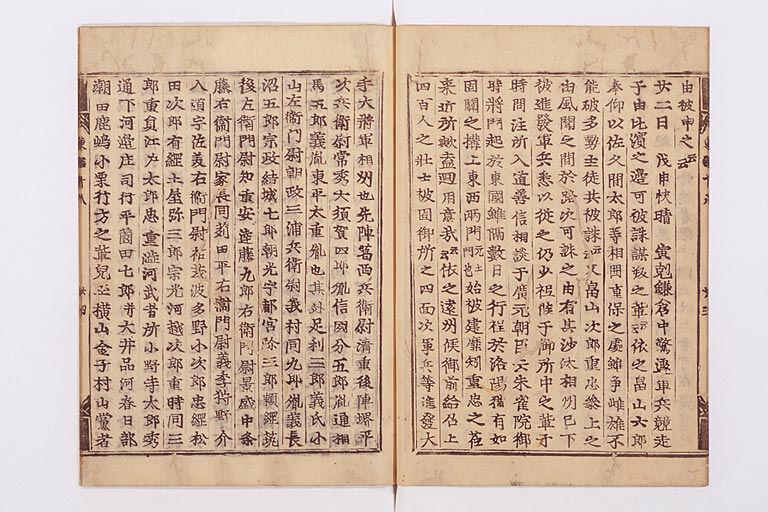 由被申之云云
廿二日 戊申快晴 寅剋鎌倉中驚遽軍兵競走
于由比濱之邊可被誅謀叛之輩云云依之畠山六郎
奉仰以佐久間太郎等相圍重保之處雖爭雌雄不
能破多勢主從共被誅云云又畠山次郎重忠參上之
由風聞之間於路次可誅之由有其沙汰相州已下
被進發軍兵悉以從之仍少祗候于御所中之輩于
時問注所入道善信相談于廣元朝臣云朱雀院御
時將門起於東國雖隔數日之行程於洛陽猶有如
固關之搆上東西兩門元土門也始被建扉矧重忠之莅
來近所歟盍廻用意哉云云依之遠州候御前給召上
四百人之壯士被固御所之四面次軍兵等進發大
手大將軍相州也先陣葛西兵衛尉清重後陣堺平
次兵衛尉常秀大須賀四郎胤信國分五郎胤通相
馬五郎義胤東平太重胤也其外足利三郎義氏小
山左衛門尉朝政三浦兵衛尉義村同九郎胤義長
沼五郎宗政結城七郎朝光宇都宮弥三郎頼經筑
後左衛門尉知重安達藤九郎右衛門尉景盛中条
藤右衛門尉家長同苅田平右衛門尉義季狩野介
入道宇佐美右衛門尉祐茂波多野小次郎忠經松
田次郎有經土屋弥三郎宗光河越次郎重時同三
郎重員江戸太郎忠重澁河武者所小野寺太郎秀
通下河邊庄司行平薗田七郎并大井品河春日部
潮田鹿嶋小栗行方之輩兒玉横山金子村山黨者
東鑑十八 廿四